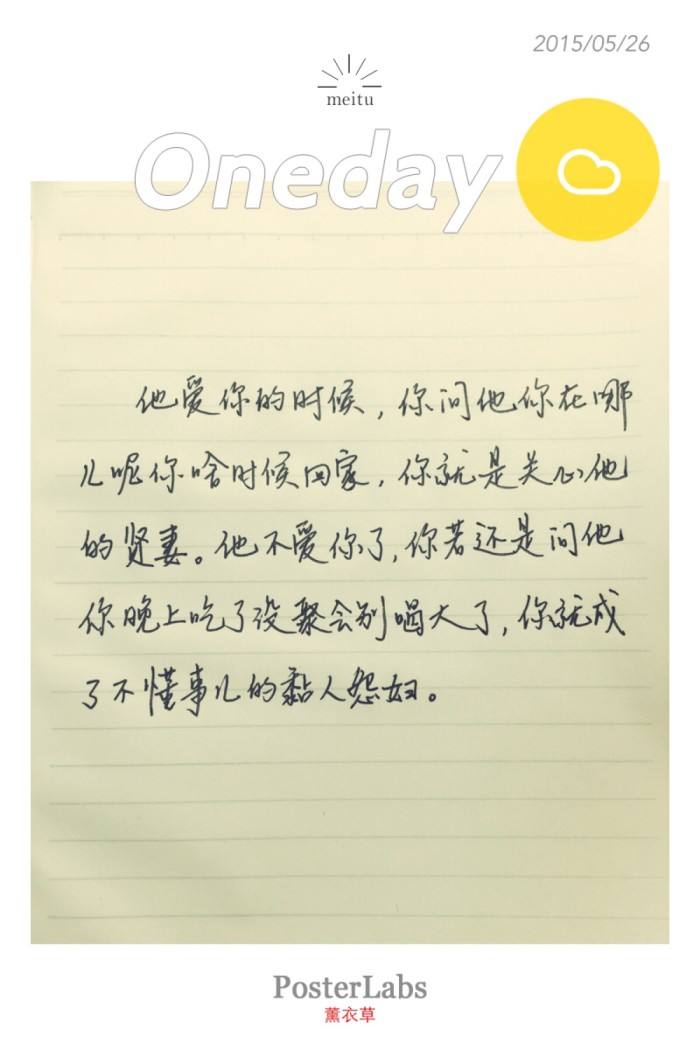 2015/05/26
meitu
Oneday
他爱你的时候，你问他你在哪
儿呢你啥时候回家，你就是关心他
的贤妻。他不爱你了，你若还是问他
你晚上吃了没聚会别喝大了，你就成
了不懂事儿的黏人怨妇。
PosterLabs
薰衣草